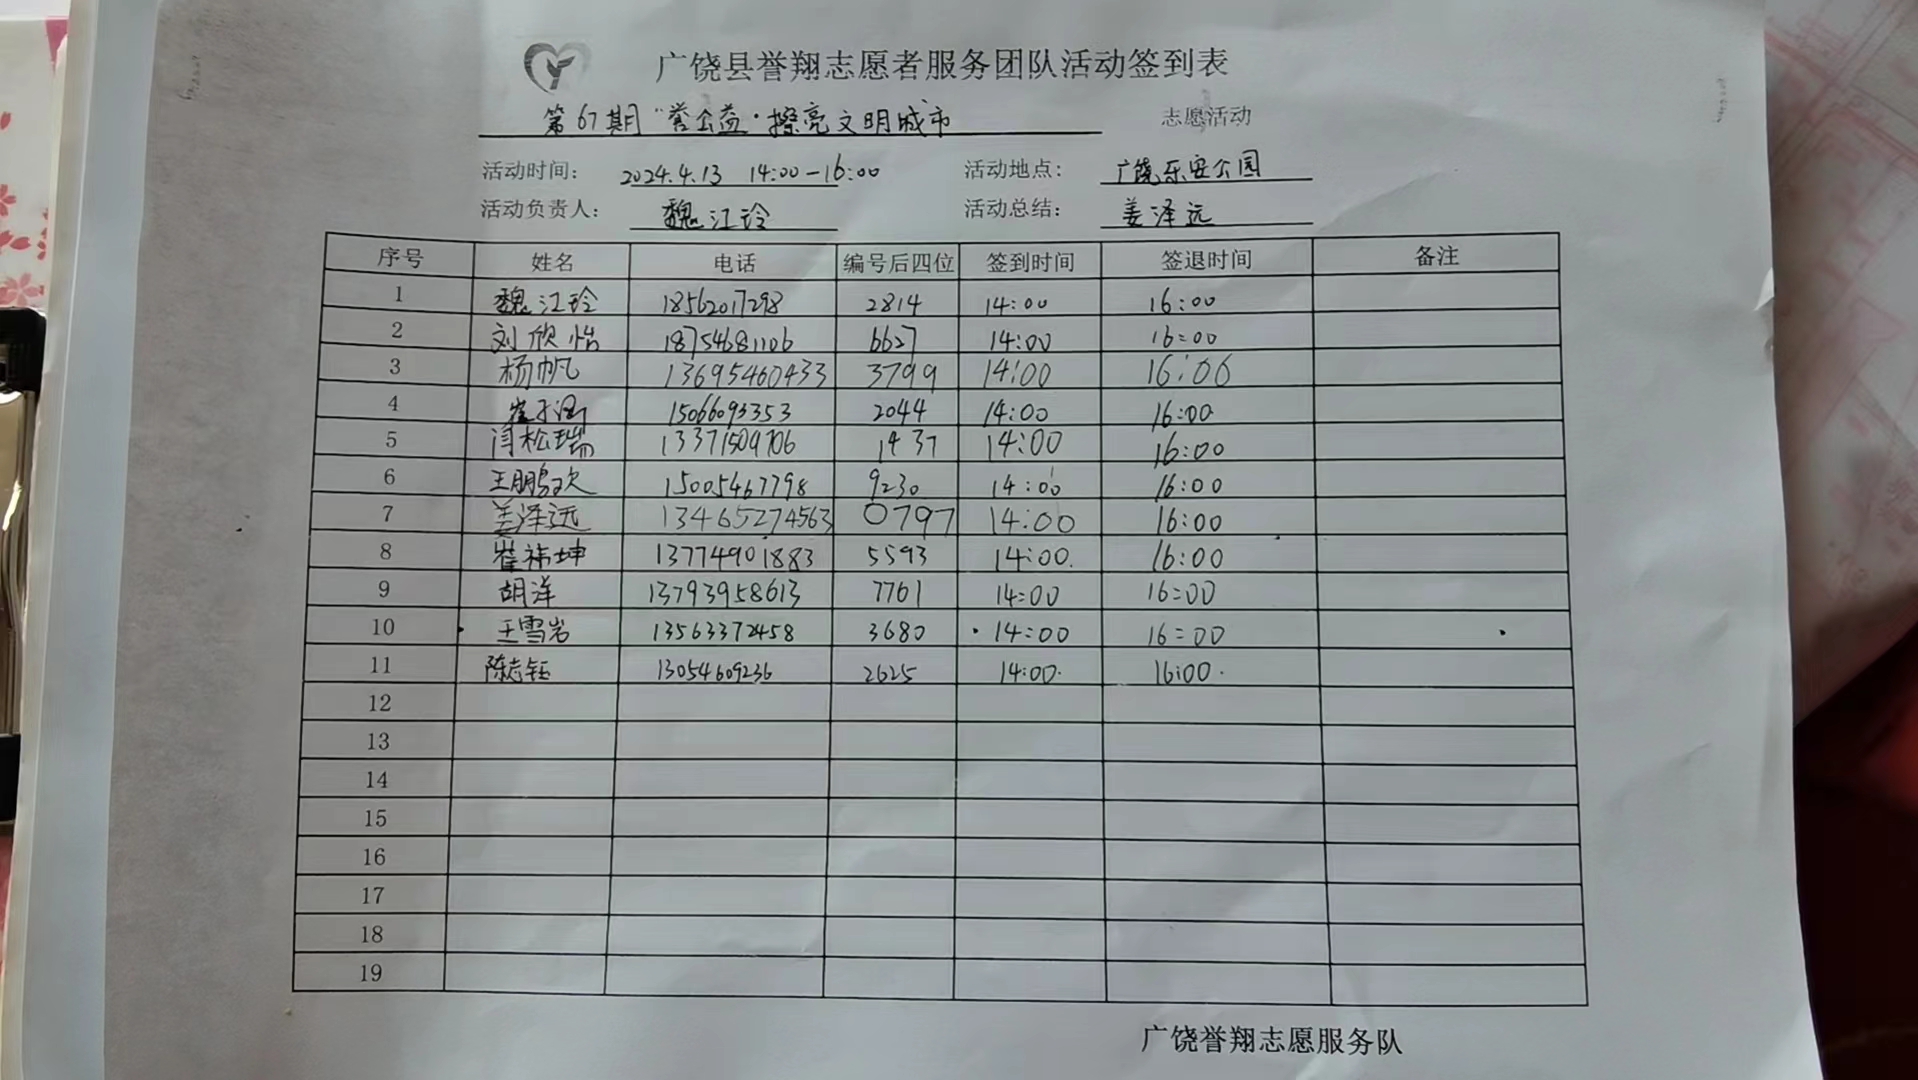 广饶县誉翔志愿者服务团队活动签到表
第67期"誉公益·擦亮文明城市 志愿活动
活动时间： 2024.4.13 14:00-16:00 活动地点： 广饶乐安公园
活动负责人： 魏江玲 活动总结： 姜泽远
序号 姓名 电话 编号后四位 签到时间 签退时间 备注
1 魏江玲 18562017298 2814 14:00 16:00
2 刘欣怡 18754681106 6627 14:00 16:00
3 杨帆 13695460433 3799 14:00 16:00
4 崔子涵 15066093353 2044 14:00 16:00
5 闫松瑞 13371509706 1437 14:00 16:00
6 王鹏 15005467798 9230 14:00 16:00
7 姜泽远 13465274563 0797 14:00 16:00
8 崔祎坤 13774901883 5593 14:00 16:00
9 胡洋 13793958613 7761 14:00 16:00
10 王雪岩 13563372458 3680 14:00 16:00
11 陈志钰 13054609236 2625 14:00 16:00
12
13
14
15
16
17
18
19
广饶誉翔志愿服务队